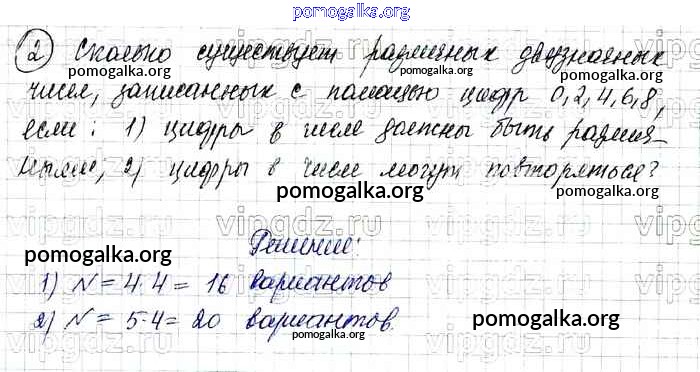 pomogalka.org
2 Сколько существует различных двузначных
pomogalka.org pomogalka.org
чисел, записанных с помощью цифр 0,2,4,6,8,
если: 1) цифры в числе должны быть различ-
ными; 2) цифры в числе могут повторяться?
pomogalka.org
vipgdz.ru vipgdz.ru vipgdz.ru
pomogalka.org Решение: pomogalka.org
1) N = 4·4 = 16 вариантов
2) N = 5·4 = 20 вариантов.
pomogalka.org
vipgdz.ru vipgdz.ru vipgdz.ru